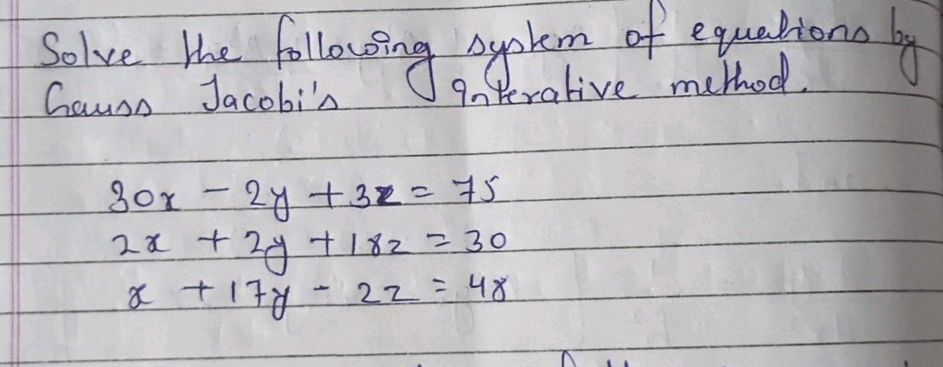 Solve the following system of equations by
Gauss Jacobi's Interative method.
30x - 2y + 3z = 75
2x + 2y + 18z = 30
x + 17y - 2z = 48